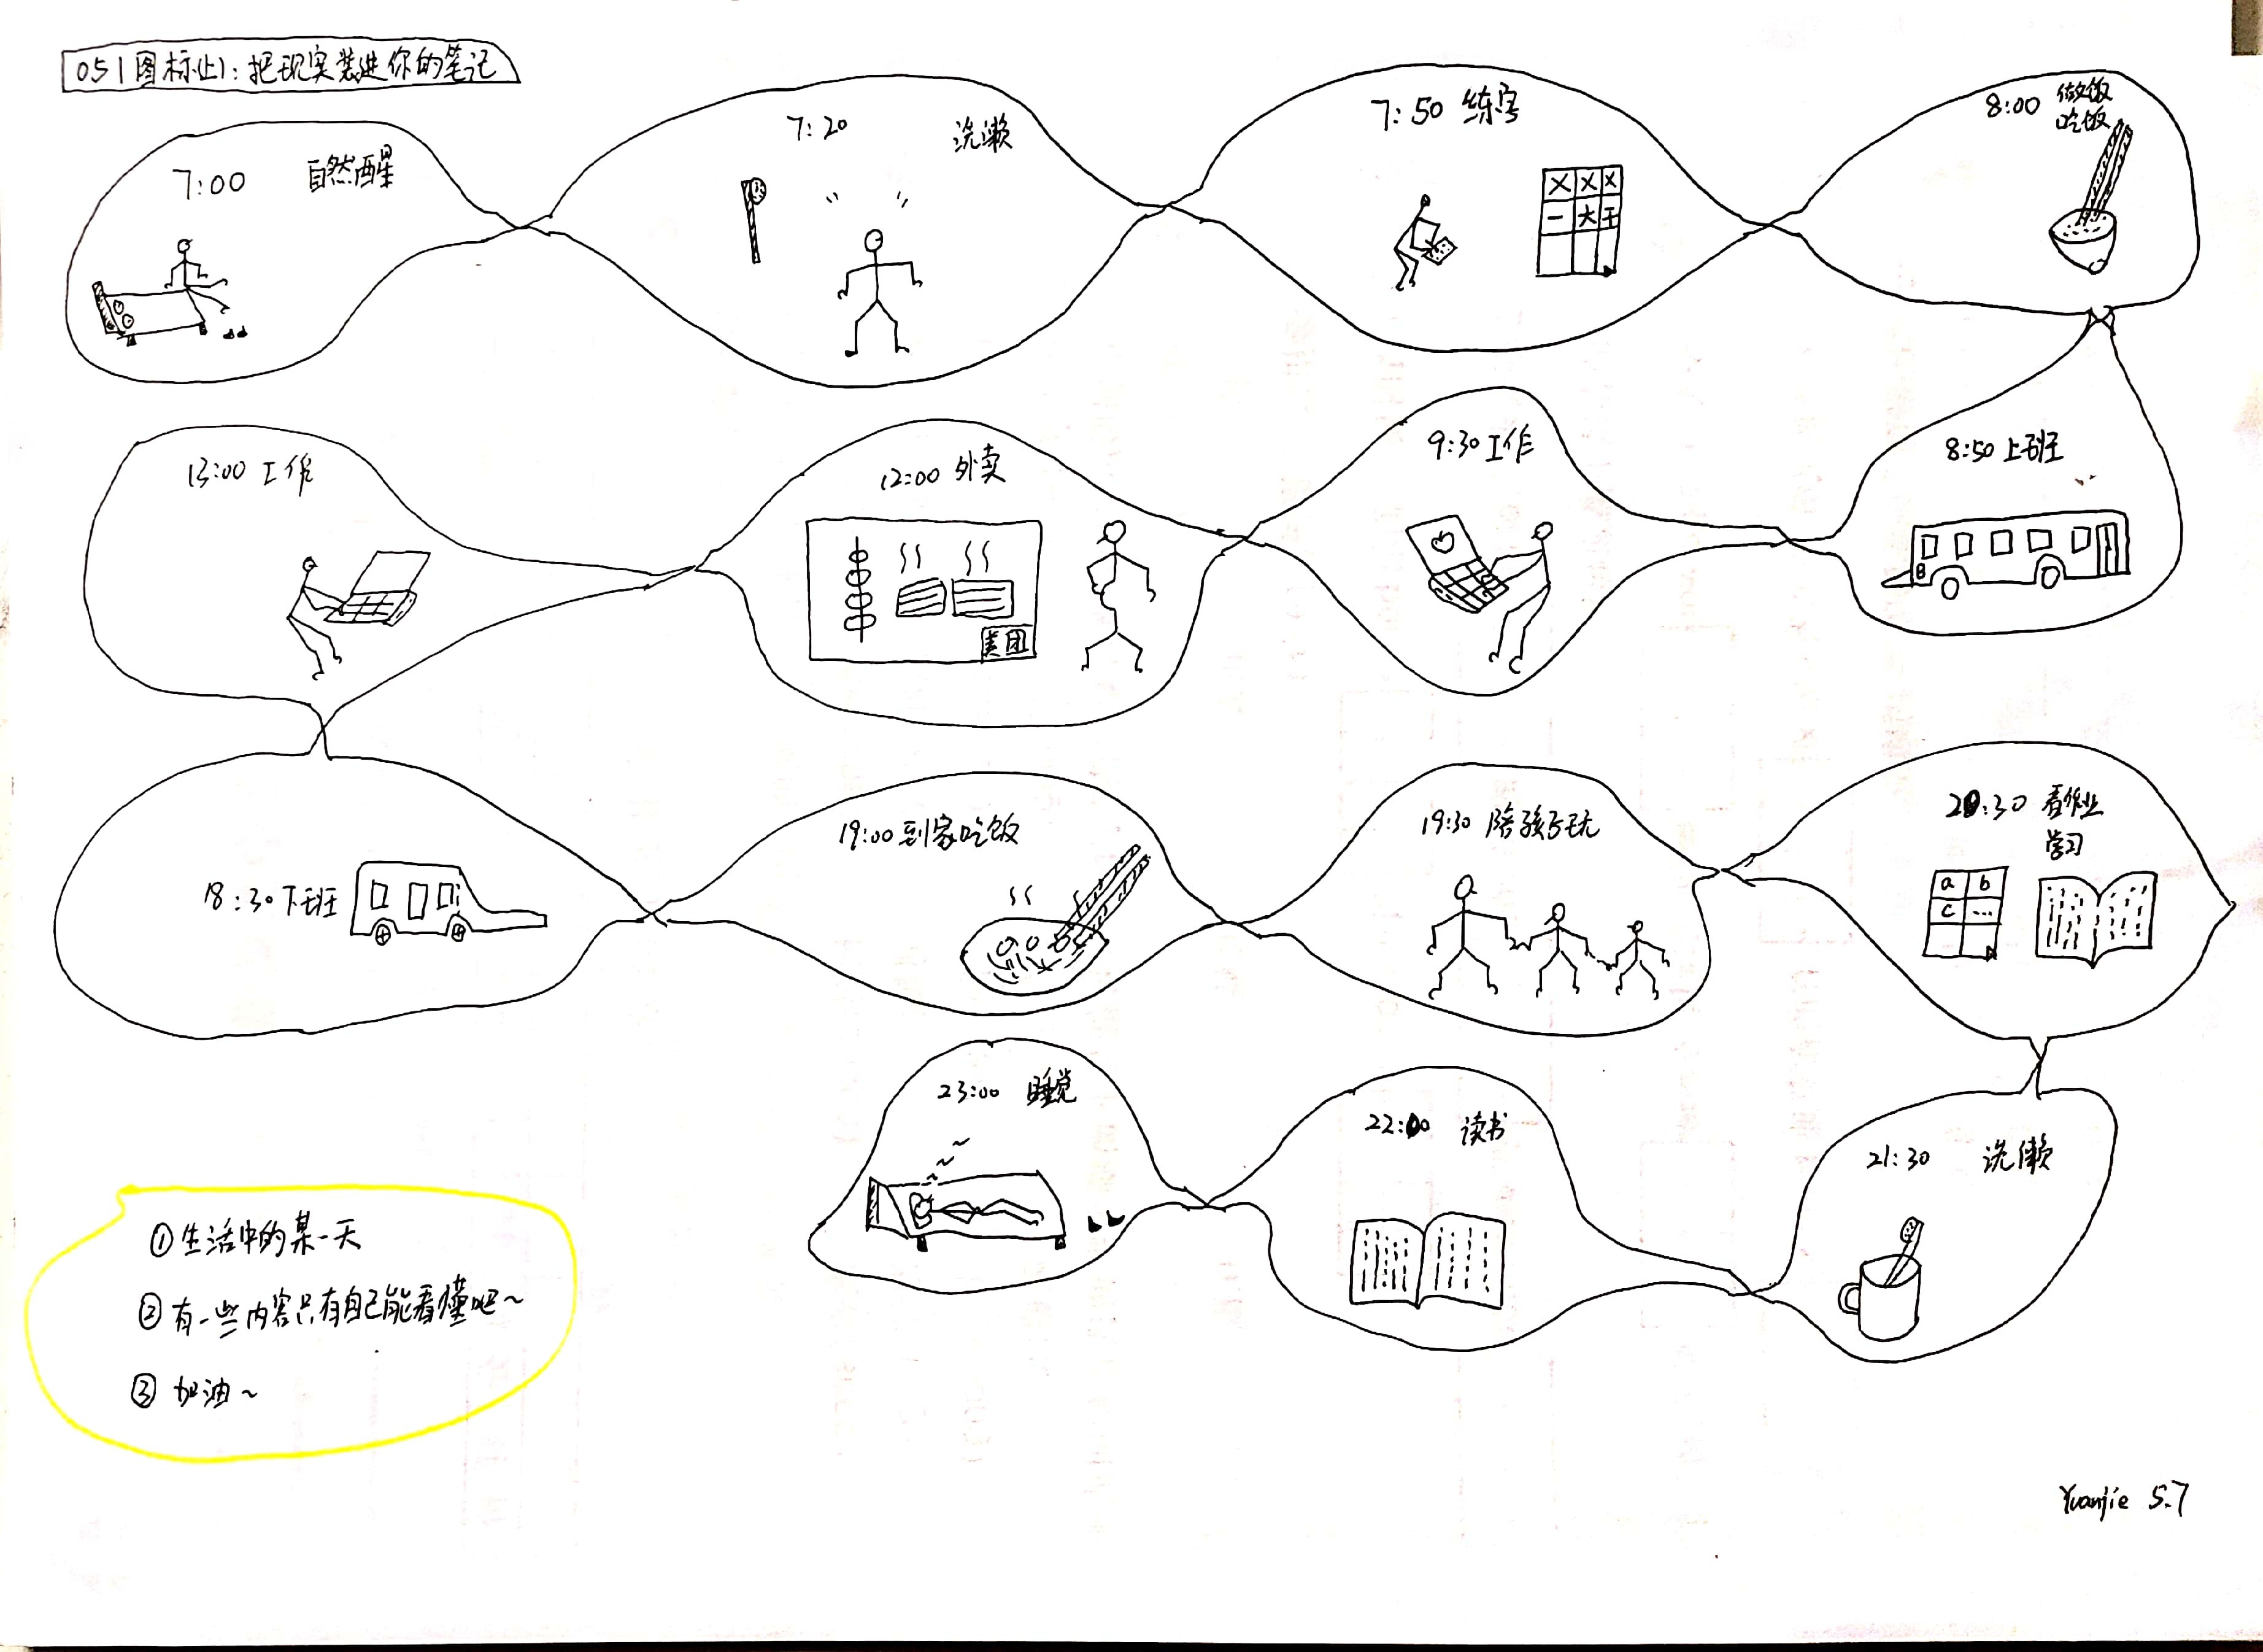 051图标(上):把现实装进你的笔记
7:00 自然醒
7:20 洗漱
7:50 练字
X X X
一 大 王
8:00 做饭
吃饭
8:50 上班
B
9:30 工作
12:00 外卖
美团
13:00 工作
18:30 下班
19:00 到家吃饭
19:30 陪孩子玩
20:30 看作业
学习
a b
c ...
21:30 洗漱
22:00 读书
23:00 睡觉
①生活中的某一天
②有一些内容只有自己能看懂吧~
③加油~
Yuanjie 5.7